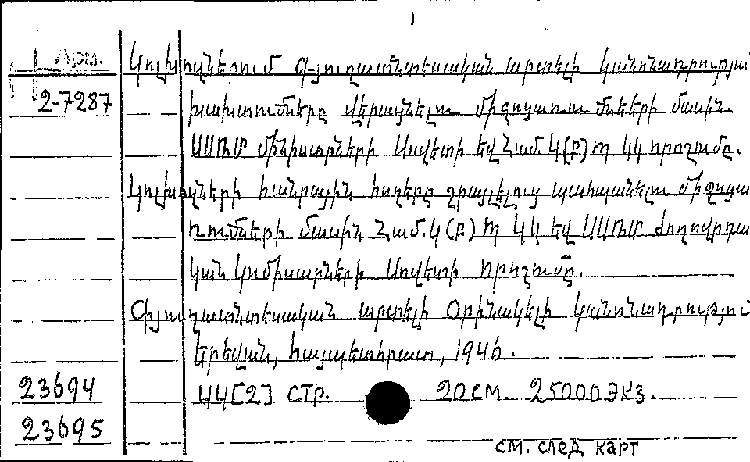 Арм.
2-7287
Կոլխոզներում Գյուղատնտեսական արտելի կանոնադրությա
խախտումները վերացնելու միջոցառումների մասին
ՍՍՌՄ մինիստրների Սովետի եվ Համ.Կ(բ)Պ ԿԿ որոշումը.
Կոլխոզների հանրային հողերը զրայելուց պահպանելու միջոցա
ռումների մասին Համ.Կ(բ)Պ ԿԿ եվ ՍՍՌՄ Ժողովրդա
կան կոմիսարների Սովետի որոշումը.
Գյուղատնտեսական արտելի օրինակելի կանոնադրությու
Երեվան, հայպետհրատ, 1946.
23694
44[2] стр. 20см. 25000экз.
23695
см. след карт